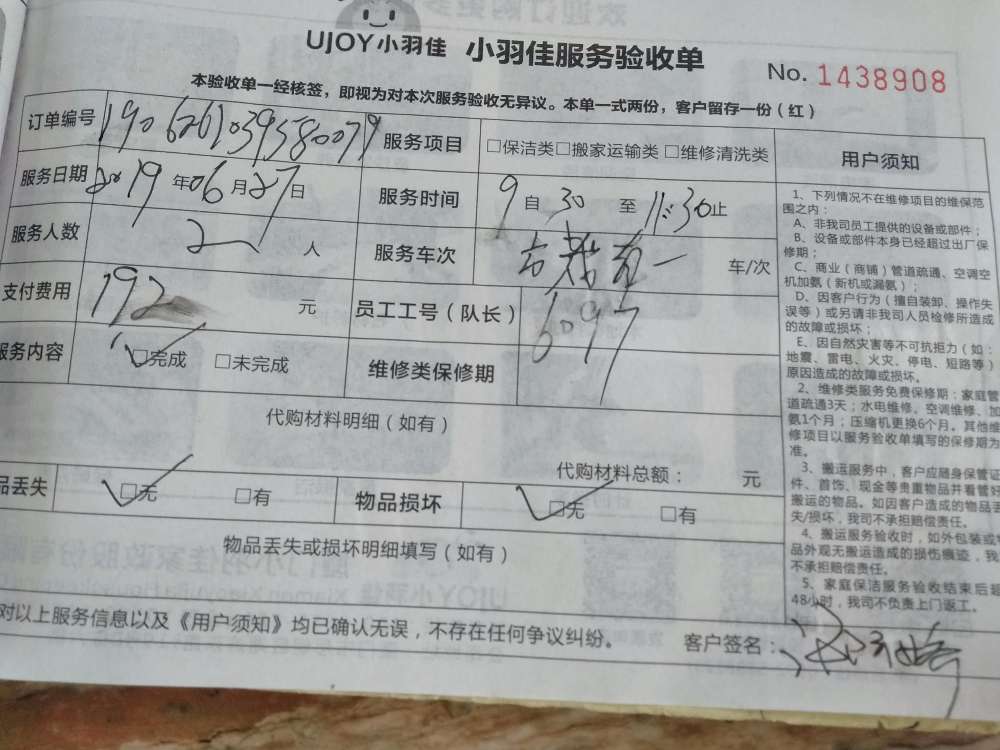 UJOY小羽佳 小羽佳服务验收单 No. 1438908
本验收单一经核签，即视为对本次服务验收无异议。本单一式两份，客户留存一份（红）
订单编号 1906261039580079 服务项目 □保洁类□搬家运输类 □维修清洗类
服务日期 2019年06月27日 服务时间 9自30至11:30止
服务人数 2 人 服务车次 车/次
支付费用 192 元 员工工号（队长） 6097
服务内容 □完成 □未完成 维修类保修期
代购材料明细（如有）
代购材料总额： 元
品丢失 □无 □有 物品损坏 □无 □有
物品丢失或损坏明细填写（如有）
对以上服务信息以及《用户须知》均已确认无误，不存在任何争议纠纷。 客户签名：
用户须知
1、下列情况不在维修项目的维保范
围之内：
A、非我司员工提供的设备或部件；
B、设备或部件本身已经超过出厂保
修期；
C、商业（商铺）管道疏通、空调空
机加氨（新机或漏氨）；
D、因客户行为（擅自装卸、操作失
误等）或另请非我司人员检修所造成
的故障或损坏；
E、因自然灾害等不可抗拒力（如：
地震、雷电、火灾、停电、短路等）
原因造成的故障或损坏。
2、维修类服务免费保修期：家庭管
道疏通3天；水电维修、空调维修、加
氨1个月；压缩机更换6个月。其他维
修项目以服务验收单填写的保修期为
准。
3、搬运服务中，客户应随身保管证
件、首饰、现金等贵重物品并看管好
搬运的物品。如因客户造成的物品丢
失/损坏，我司不承担赔偿责任。
4、搬运服务验收时，如外包装或物
品外观无搬运造成的损伤痕迹，我
不承担赔偿责任。
5、家庭保洁服务验收结束后超
48小时，我司不负责上门返工。